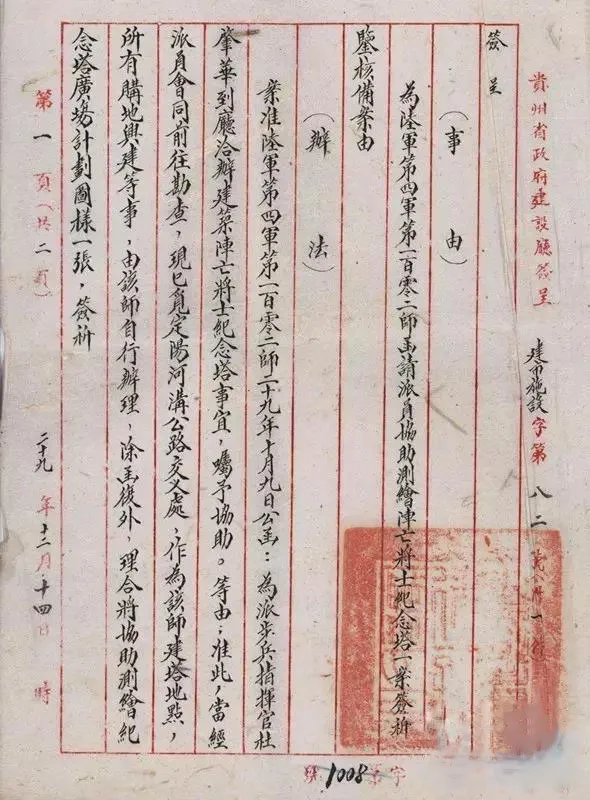 貴州省政府建設廳簽呈
建市施設字第八二
簽呈
（事由）
為陸軍第四軍第一百零二師函請派員協助測繪陣亡將士紀念塔一案簽祈
鑒核備案由
（辦法）
案准陸軍第四軍第一百零二師二十九年十月九日公函：為派步兵指揮官杜
肇華到廳洽辦建築陣亡將士紀念塔事宜，囑予協助。等由；准此，當經
派員會同前往勘查，現已覓定陽河溝公路交义處，作為該師建塔地點，
所有購地興建等事，由該師自行辦理，除函復外，理合將協助測繪紀
念塔廣場計劃圖樣一張，簽祈
第一頁（共二頁）
二十九年十二月十四日 時
字第1008號